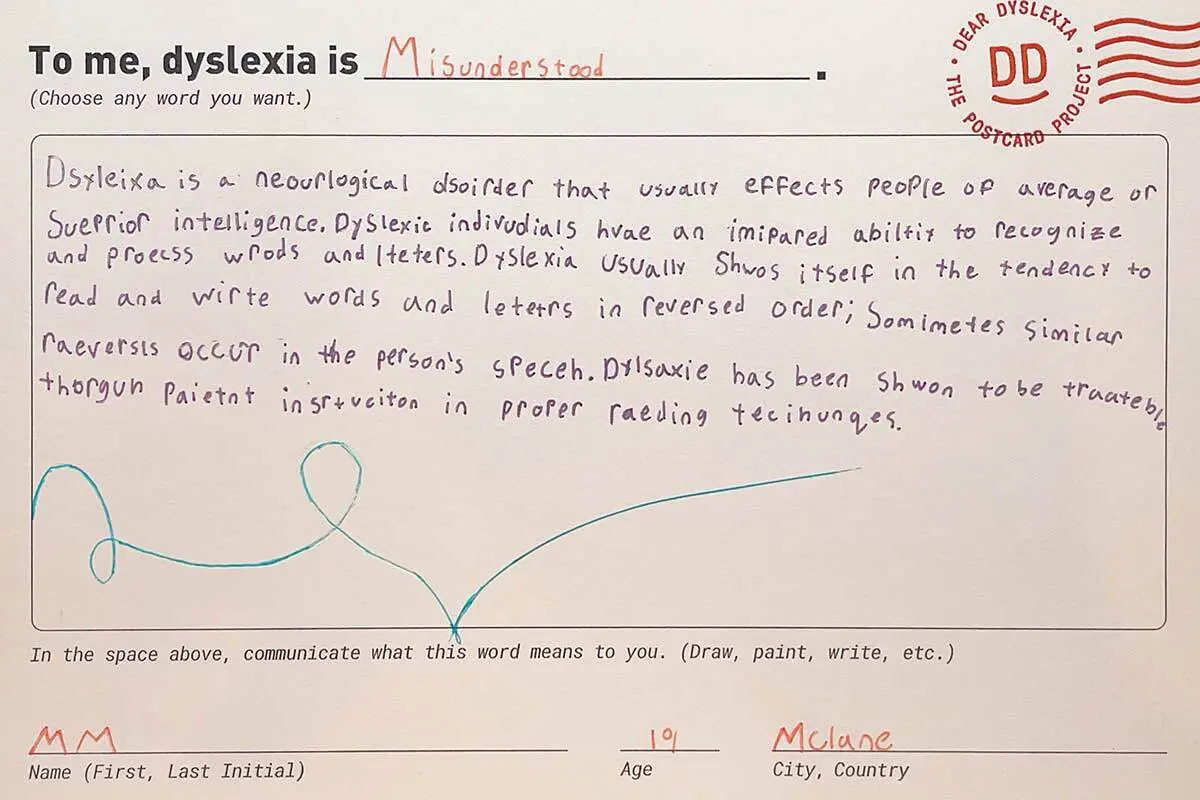 To me, dyslexia is Misunderstood.
(Choose any word you want.)
DEAR DYSLEXIA
DD
THE POSTCARD PROJECT
Dsyleixa is a neourlogical dsoirder that usually effects people of average or
Sueprior intelligence. Dyslexic indivudials hvae an imipared abiltiy to recognize
and proecss wrods and lteters. Dyslexia usually Shwos itself in the tendency to
read and wirte words and leterrs in reversed order; Somimetes similar
raeversls occur in the person's speceh. Dylsaxie has been Shwon to be traateble
thorgun Paietnt insrtvciton in proper raeding tecihunqes.
In the space above, communicate what this word means to you. (Draw, paint, write, etc.)
MM Mclane
Name (First, Last Initial) Age City, Country